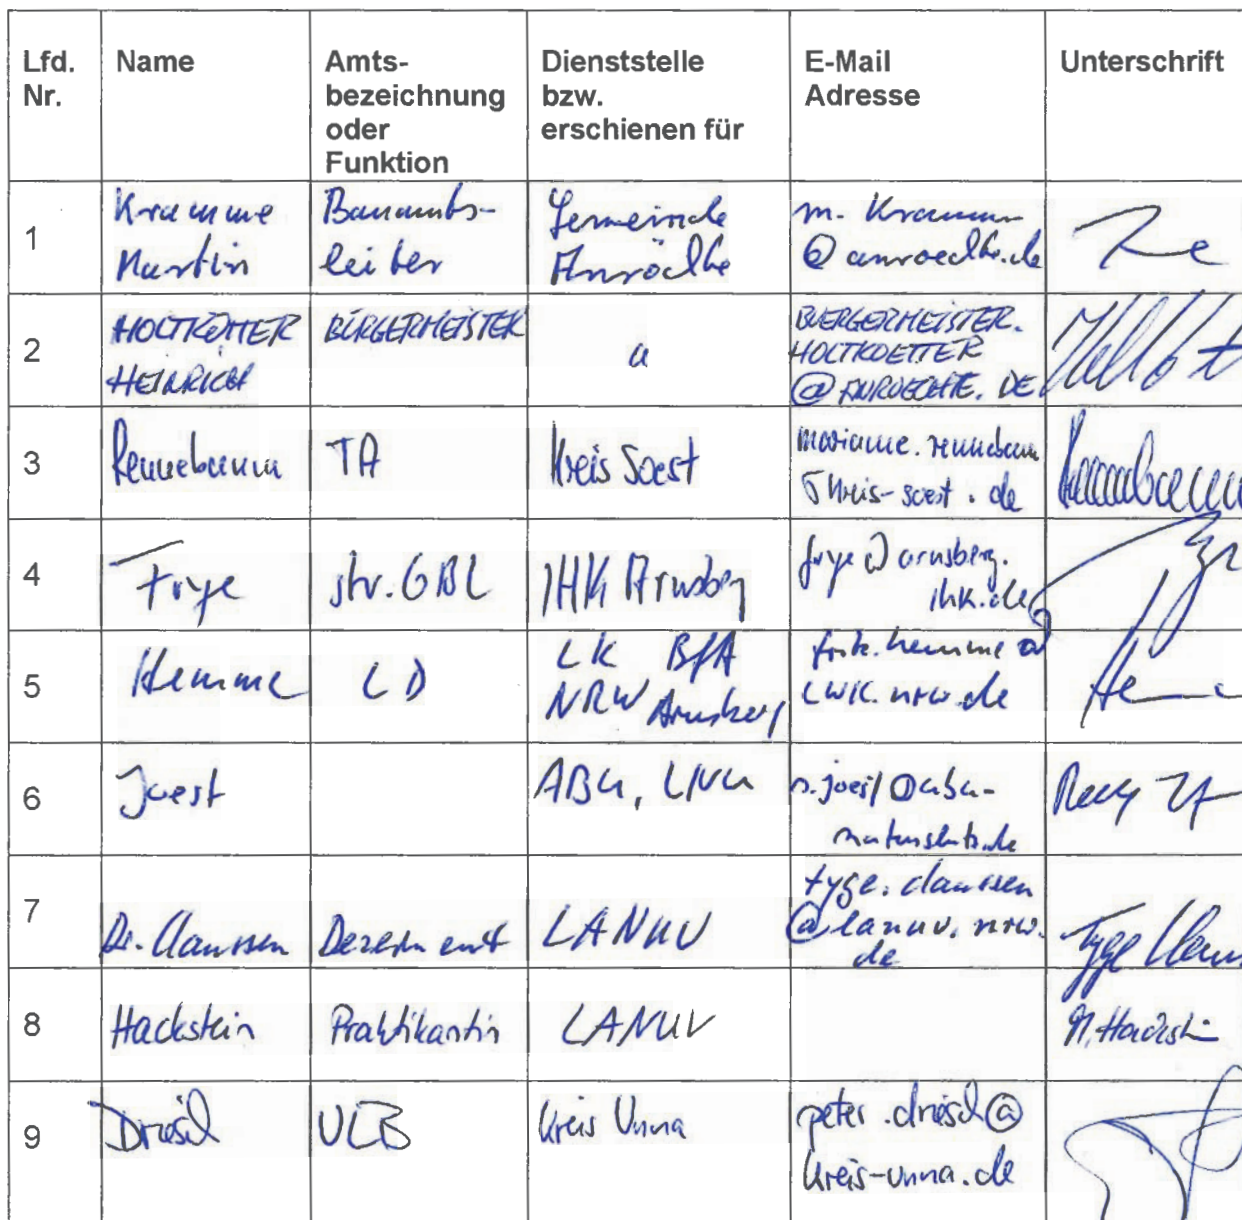 Lfd. Nr. Name Amts- bezeichnung oder Funktion Dienststelle bzw. erschienen für E-Mail Adresse Unterschrift
1 Kramme Martin Bauamts- leiter Gemeinde Anröchte m.kramme @anroechte.de
2 HOLTKÖTTER HEINRICH BÜRGERMEISTER " BUERGERMEISTER. HOLTKOETTER @ANROECHTE.DE
3 Rennebaum TA Kreis Soest marianne.rennebaum kreis-soest.de Rennebaum
4 Frye stv. GBL IHK Arnsberg frye@arnsberg. ihk.de
5 Hemme LD LK BfA NRW Arnsberg hemme@ LWK.nrw.de
6 Joest ABU, LNU r.joest@abu- naturschutz.de
7 Dr. Claussen Dezernent LANUV tyge.claussen @lanuv.nrw. de Tyge
8 Hackstein Praktikantin LANUV
9 Driesch ULB Kreis Unna peter.driesch@ kreis-unna.de